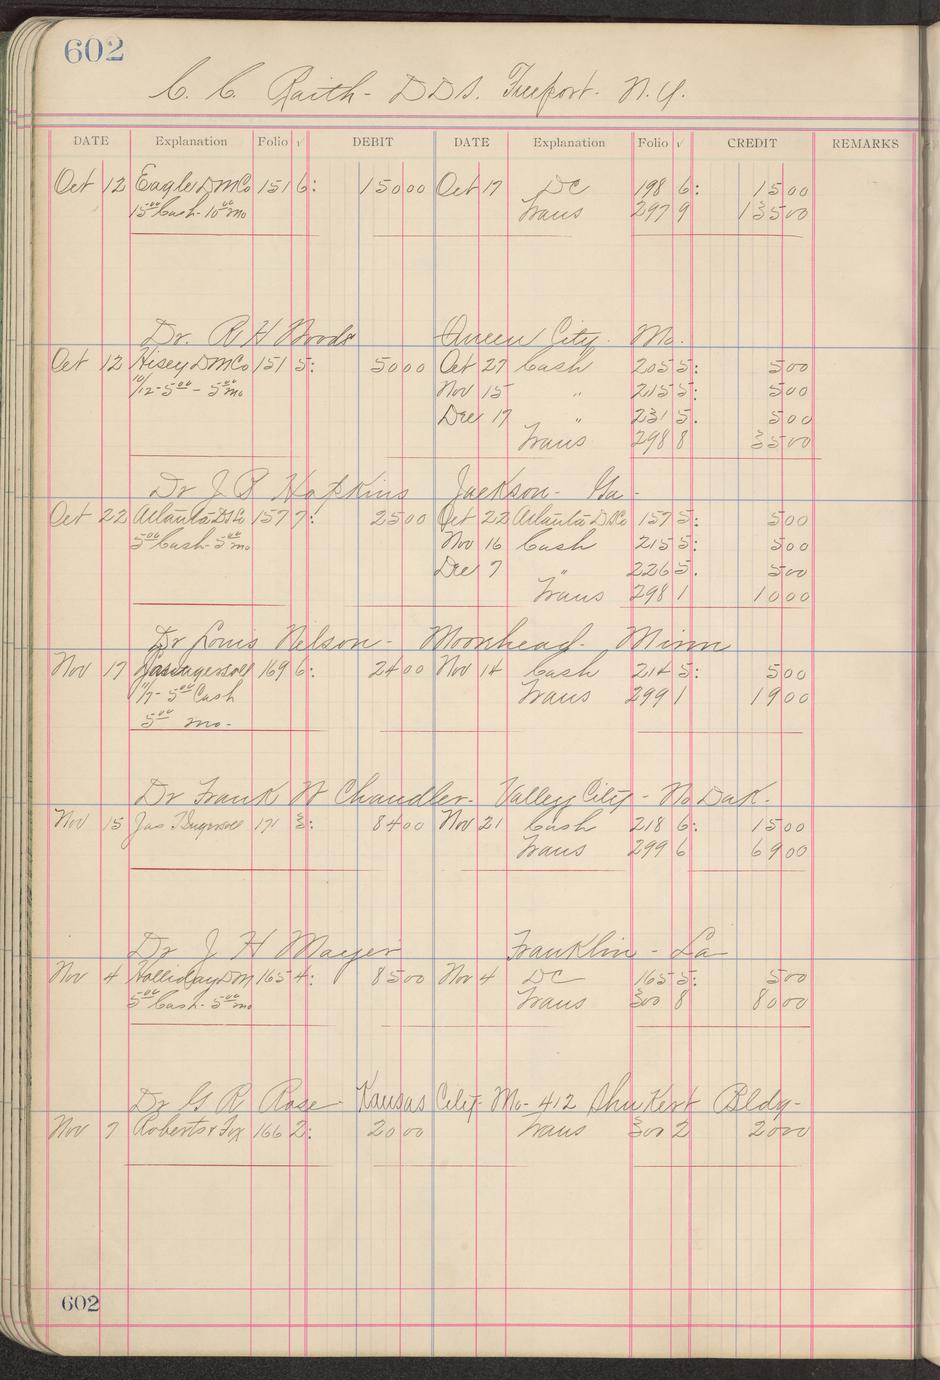 602
C. C. Raith - DDS. Freeport. N.Y.
DATE Explanation Folio √ DEBIT DATE Explanation Folio √ CREDIT REMARKS
Oct 12 Eagle DMCo 151 6: 150 00 Oct 17 DC 198 6: 15 00
15 00 Cash - 10 00 mo Trans 297 9 135 00
Dr. R H Woods Queen City. Mo.
Oct 12 Hisey DMCo 151 5: 50 00 Oct 27 Cash 205 5: 5 00
10/12 - 5 00 - 5 00 mo Nov 15 " 215 5: 5 00
Dec 17 " 231 5. 5 00
Trans 298 8 35 00
Dr J B Hopkins Jackson - Ga -
Oct 22 Atlanta DSCo 157 7: 25 00 Oct 22 Atlanta DSCo 157 5: 5 00
5 00 Cash - 5 00 mo Nov 16 Cash 215 5: 5 00
Dec 7 " 226 5. 5 00
Trans 298 1 10 00
Dr Louis Nelson - Moorhead - Minn
Nov 17 169 6: 24 00 Nov 14 Cash 214 5: 5 00
11/7 - 5 00 Cash Trans 299 1 19 00
5 00 mo -
Dr Frank W Chandler - Valley City - No Dak -
Nov 15 Jas T Ingersoll 171 3: 84 00 Nov 21 Cash 218 6: 15 00
Trans 299 6 69 00
Dr J H Mayer Franklin - La
Nov 4 Holliday DM 165 4: 85 00 Nov 4 DC 165 5: 5 00
5 00 Cash - 5 00 mo Trans 300 8 80 00
Dr G R Rose - Kansas City - Mo - 412 Shukert Bldg -
Nov 7 Roberts & Fox 166 2: 20 00 Trans 300 2 20 00
602